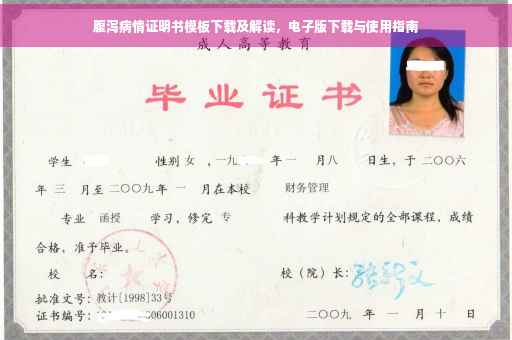 腹泻病情证明书模板下载及解读，电子版下载与使用指南
成人高等教育
毕业证书
学生 性别 女 ，一九 年 一 月八 日生，于 二〇〇六
年 三 月至 二〇〇九年 一 月在本校 财务管理
专业 函授 学习，修完 专 科教学计划规定的全部课程，成绩
合格，准予毕业。
校 名： 校（院）长：
批准文号：教计[1998]33号
证书编号： 06001310 二〇〇九 年 一 月 十 日